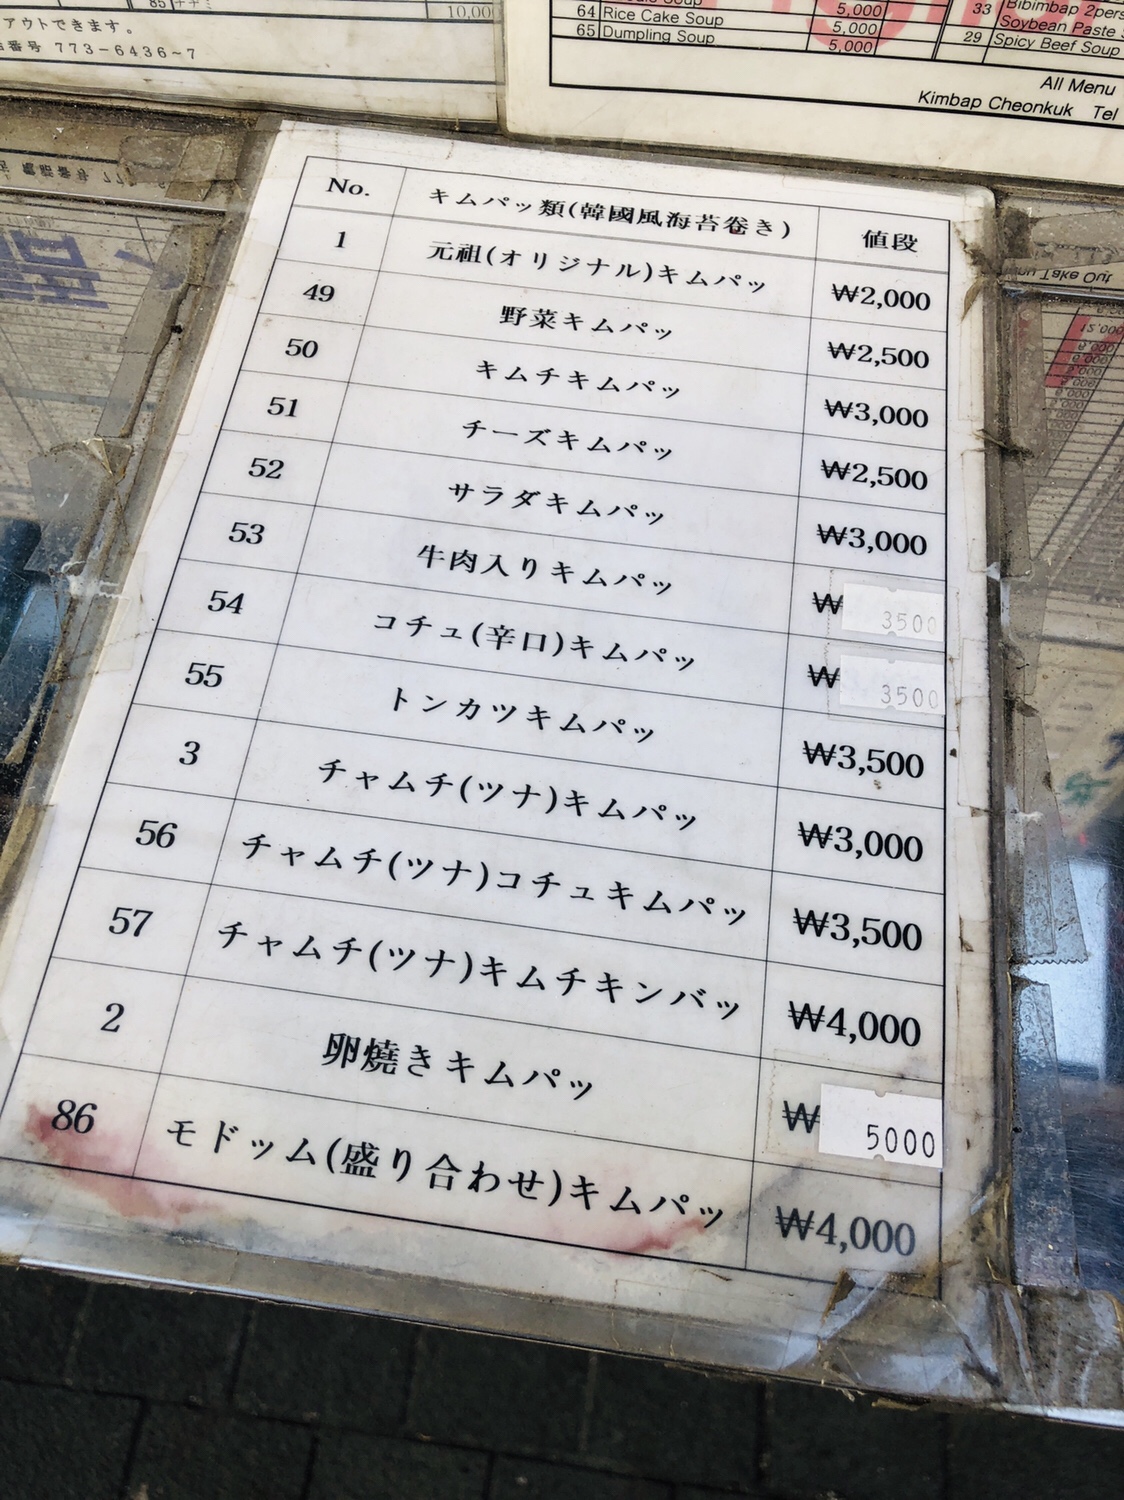 10,00
アウトできます。
番号 773-6436~7
64 Rice Cake Soup 5,000
65 Dumpling Soup 5,000
5,000
33 Bibimbap 2pers
Soybean Paste
29 Spicy Beef Soup
All Menu
Kimbap Cheonkuk Tel
No. キムパッ類(韓國風海苔卷き) 値段
1 元祖(オリジナル)キムパッ ₩2,000
49 野菜キムパッ ₩2,500
50 キムチキムパッ ₩3,000
51 チーズキムパッ ₩2,500
52 サラダキムパッ ₩3,000
53 牛肉入りキムパッ ₩ 3500
54 コチュ(辛口)キムパッ ₩ 3500
55 トンカツキムパッ ₩3,500
3 チャムチ(ツナ)キムパッ ₩3,000
56 チャムチ(ツナ)コチュキムパッ ₩3,500
57 チャムチ(ツナ)キムチキンバッ ₩4,000
2 卵燒きキムパッ ₩ 5000
86 モドッム(盛り合わせ)キムパッ ₩4,000
Take Out